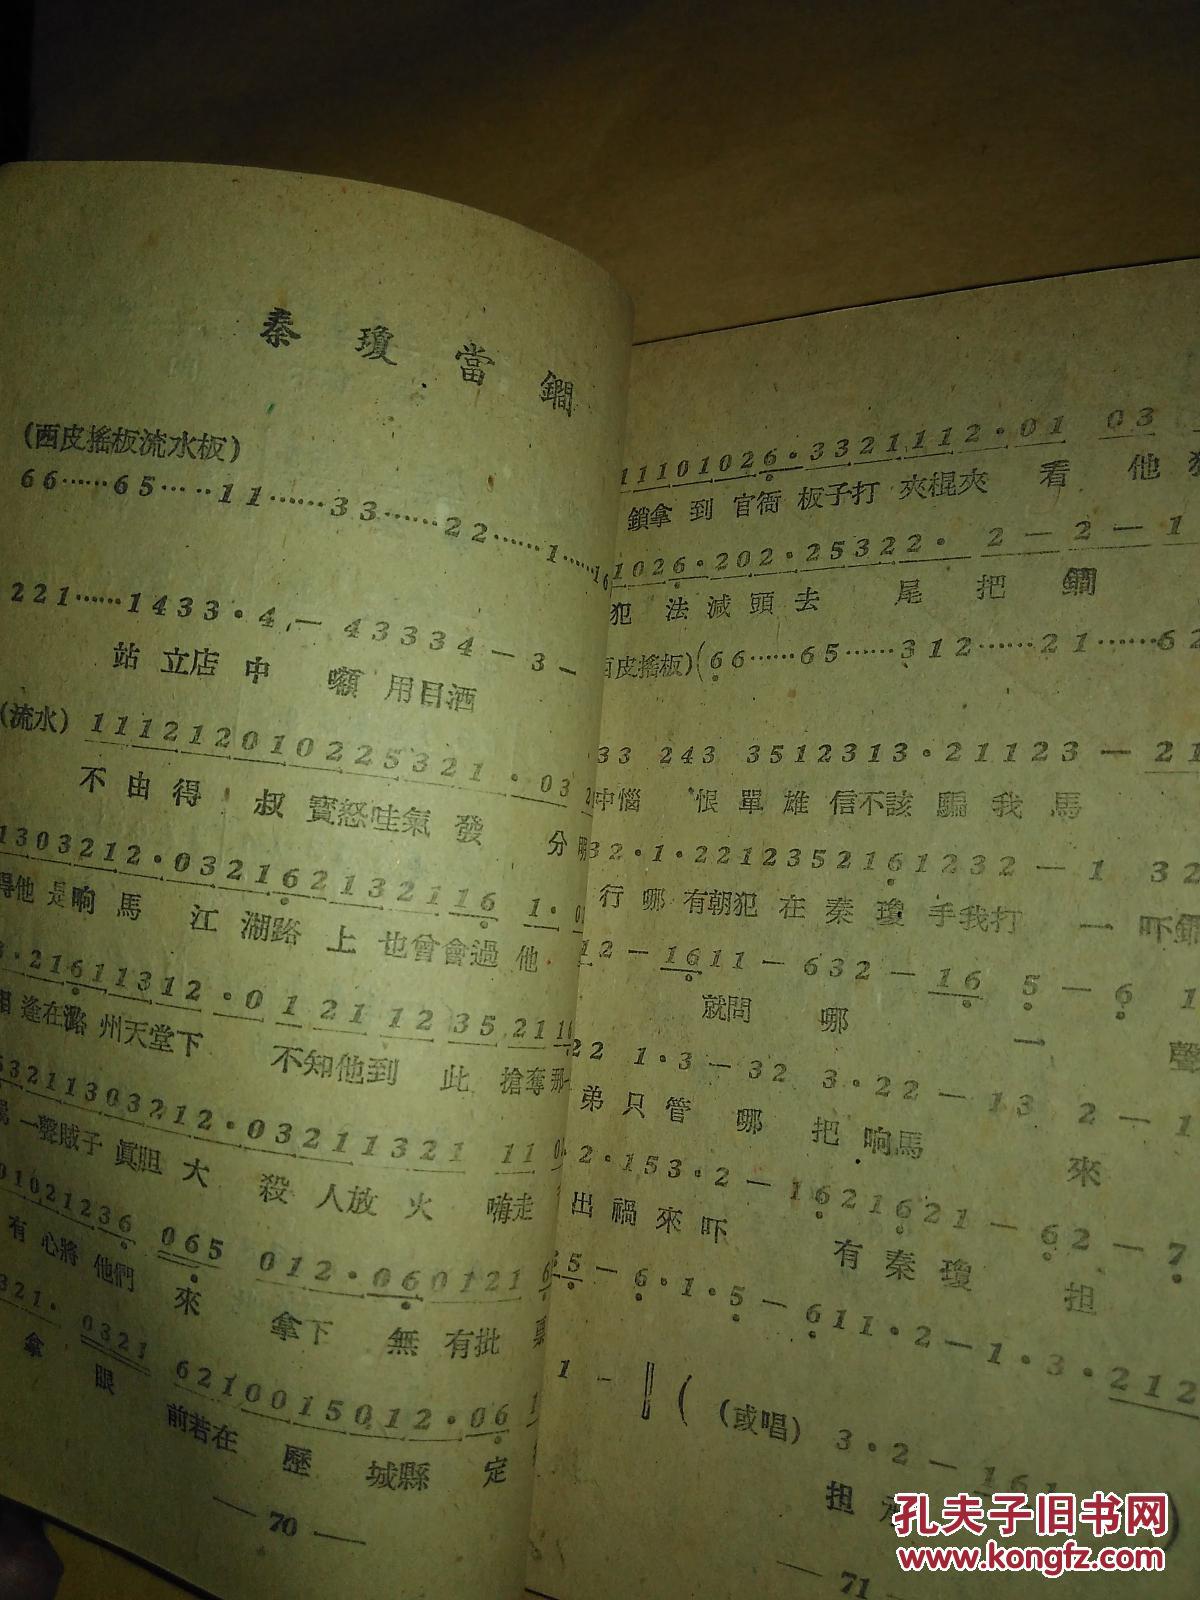 秦瓊當鐧
(西皮搖板流水板)
66……65……11……33……22……1……16
221……1433·4－43334－3－
站立店中 嚬用目洒
(流水) 111212010225321·03
不由得 叔寶怒哇氣發 分明
1303212·032162132116 1·0
得他是响馬 江湖路上也曾會過他
3·21611312·0 1 21 12 35 21 11
相逢在潞州天堂下 不知他到此搶奪那
53211303212·03211321 11
一聲賊子眞胆大 殺人放火 嗨走
01021236 065 012·060121 6
有心將他們來拿下 無有批票
321· 0321 6210015012·06
拿 眼前若在歷城縣定
— 70 —
11101026·33211112·01 03
鎖拿到官衙板子打夾棍夾 看他犯
1026·202·25322· 2－2－1
犯法減頭去 尾把鐧
西皮搖板)(66……65……312……21……62
33 243 3512313·21123－21
中惱 恨單雄信不該騙我馬
32·1·2212352161232－1 32
行哪有朝犯在秦瓊手我打一吓鐧
12－1611－632－16 5－6 1
就問哪 一聲
22 1·3－32 3·22－13 2－1
弟只管哪把响馬 來
2·153·2－1621621－62－7
出禍來吓 有秦瓊 担
65－6·1·5－611·2－1·3·212
1 - ‖( (或唱) 3·2－161
担
— 71 —
孔夫子旧书网
www.kongfz.com